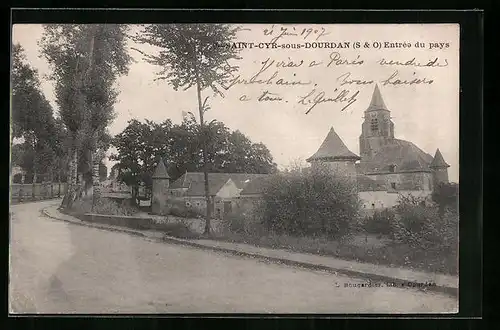 21 Juin 1907
SAINT-CYR-sous-DOURDAN (S & O) Entrée du pays
J'irai à Paris vendredi
prochain. Bons baisers
à tous.
L. Bougardier, lib. à Dourdan